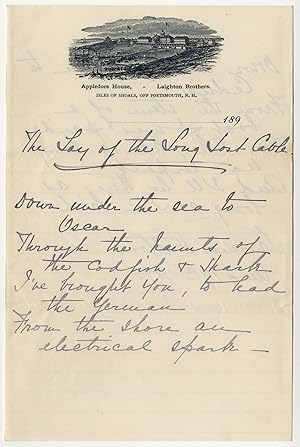 Appledore House, - Laighton Brothers.
ISLES OF SHOALS, OFF PORTSMOUTH, N. H.
189
The Lay of the Long Lost Cable.
Down under the sea to
Oscar
Through the haunts of
the Codfish & Shark
I've brought you, to lead
the German
From the shore an
electrical spark —